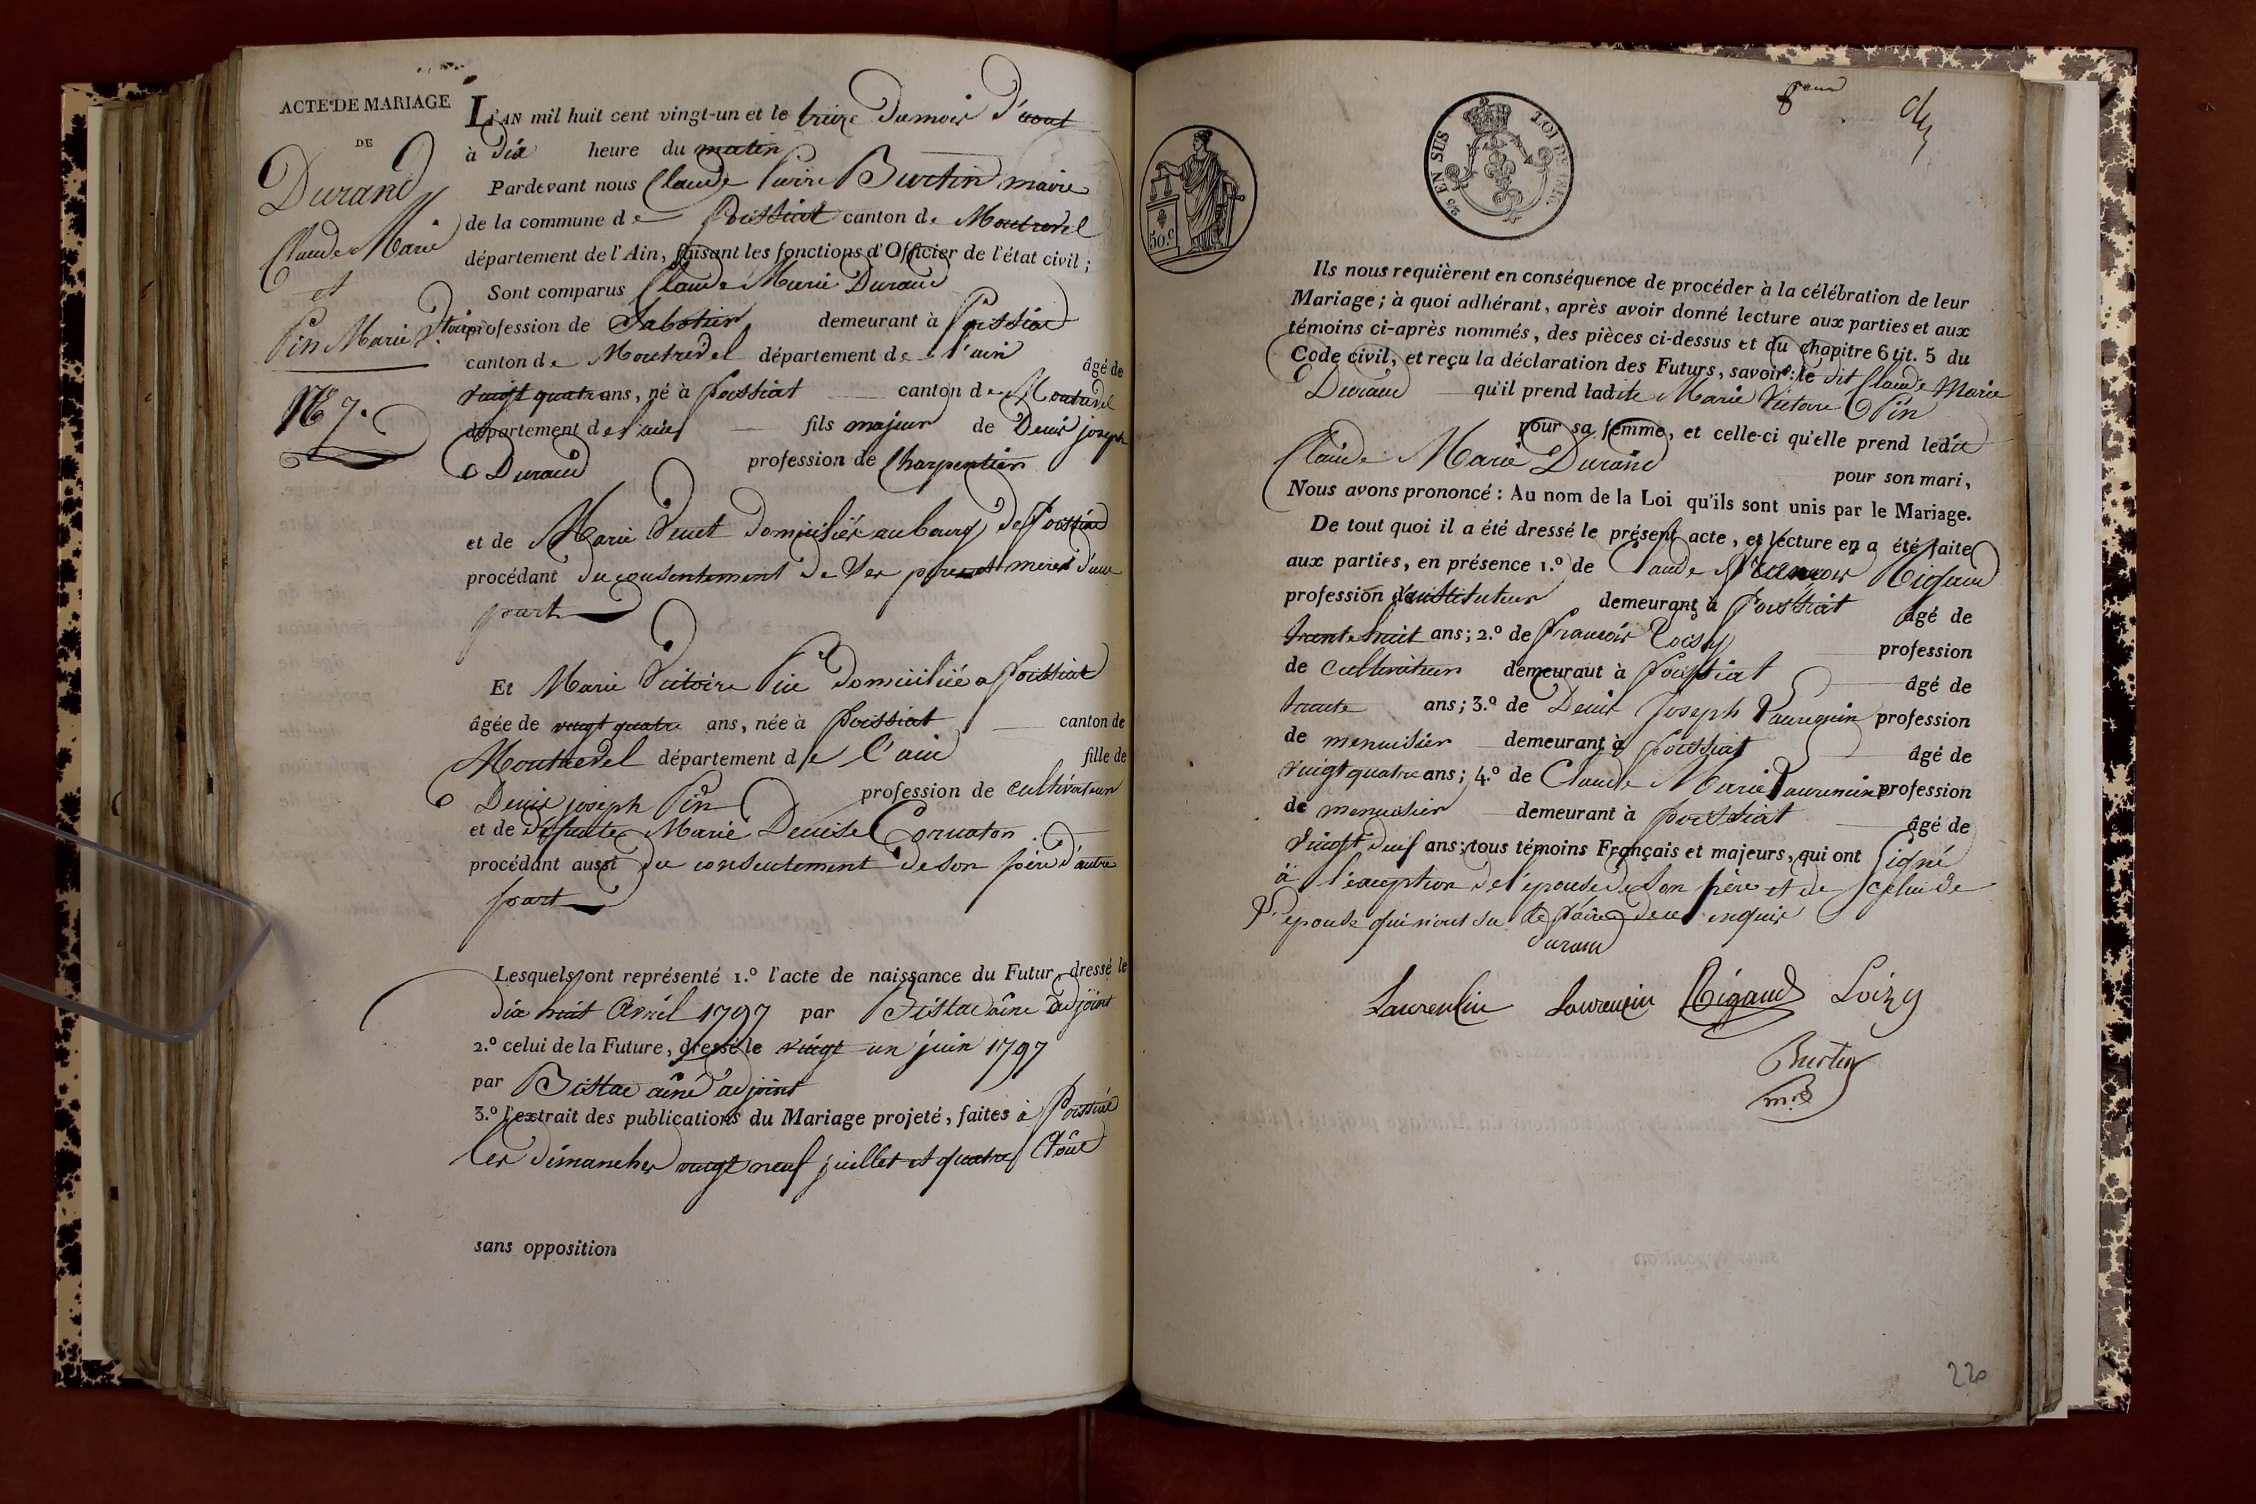 ACTE DE MARIAGE
DE
Durand
Claude Marie
et
Pin Marie V.toire
N° 7.
L'AN mil huit cent vingt-un et le treize du mois d'aout
à dix heure du matin
Pardevant nous Claude Pierre Burtin maire
de la commune de Poissiat canton de Montrevel
département de l'Ain, faisant les fonctions d'Officier de l'état civil ;
Sont comparus Claude Marie Durand
profession de Sabotier demeurant à Poissiat
canton de Montrevel département de l'ain âgé de
vingt quatre ans, né à Poissiat canton de Montrevel
département de l'ain fils majeur de Denis joseph
Durand profession de Charpentier
et de Marie Vuet domiciliés au bourg de Poissiat
procédant du consentement de ses pere et mere d'une
part
Et Marie Victoire Pin domiciliée a Poissiat
âgée de vingt quatre ans, née à Poissiat canton de
Montrevel département de l'ain fille de
Denis joseph Pin profession de cultivateur
et de défunte Marie Denise Cornaton
procédant aussi du consentement de son père d'autre
part
Lesquels ont représenté 1.° l'acte de naissance du Futur, dressé le
dix huit avril 1797 par Bistac aîné adjoint
2.° celui de la Future, dressé le vingt un juin 1797
par Bistac aîné adjoint
3.° l'extrait des publications du Mariage projeté, faites à Poissiat
les dimanches vingt neuf juillet et quatre Aout
sans opposition
EN SUS
LOI DE
50.c
Ils nous requièrent en conséquence de procéder à la célébration de leur
Mariage ; à quoi adhérant, après avoir donné lecture aux parties et aux
témoins ci-après nommés, des pièces ci-dessus et du chapitre 6 tit. 5 du
Code civil, et reçu la déclaration des Futurs, savoir : le dit Claude Marie
Durand qu'il prend ladite Marie Victoire Pin
pour sa femme, et celle-ci qu'elle prend ledit
Claude Marie Durand pour son mari,
Nous avons prononcé : Au nom de la Loi qu'ils sont unis par le Mariage.
De tout quoi il a été dressé le présent acte, et lecture en a été faite
aux parties, en présence 1.° de Claude François Rigaud
profession d'instituteur demeurant à Poissiat âgé de
trente huit ans ; 2.° de François Loisy profession
de cultivateur demeurant à Poissiat âgé de
trente ans ; 3.° de Denis Joseph Laurencin profession
de menuisier demeurant à Poissiat âgé de
vingt quatre ans ; 4.° de Claude Marie Laurencin profession
de menuisier demeurant à Poissiat âgé de
vingt neuf ans ; tous témoins Français et majeurs, qui ont signé
à l'exception de l'epouse de son père et de celui de
l'epouse qui n'ont su le faire de ce enquis
durand
Laurencin Laurencin Rigaud Loizy
Burtin
220